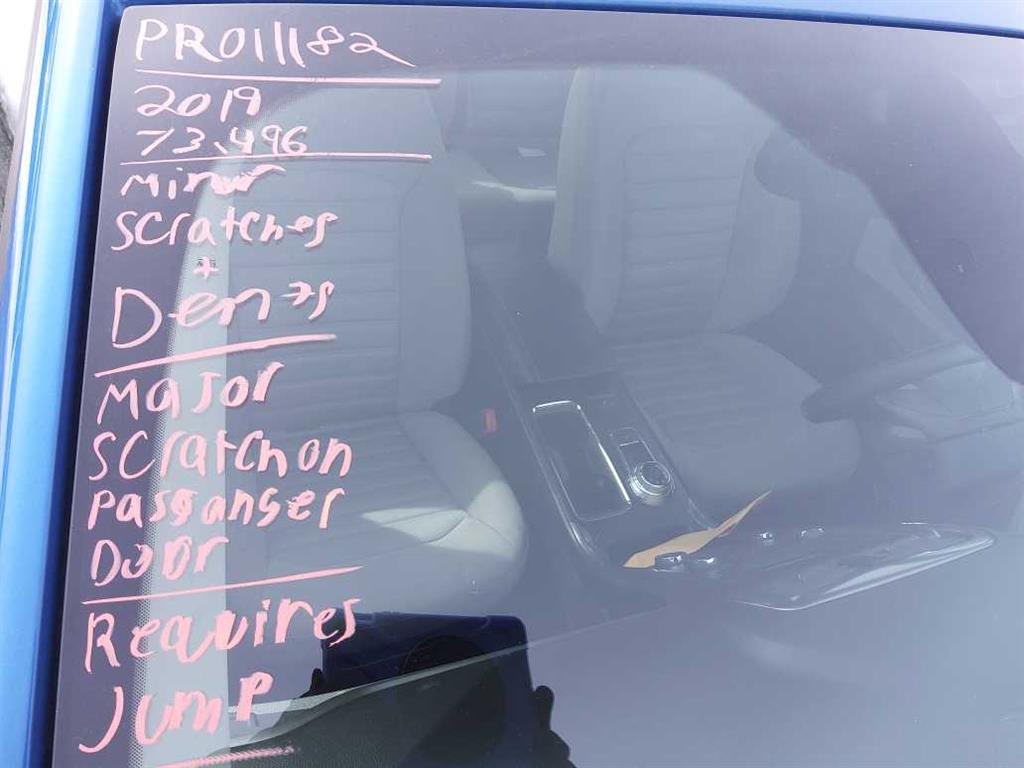 PRO11182
2019
73,496
Minor
Scratches
+
Dents
Major
Scratch on
Passanger
Door
Requires
Jump